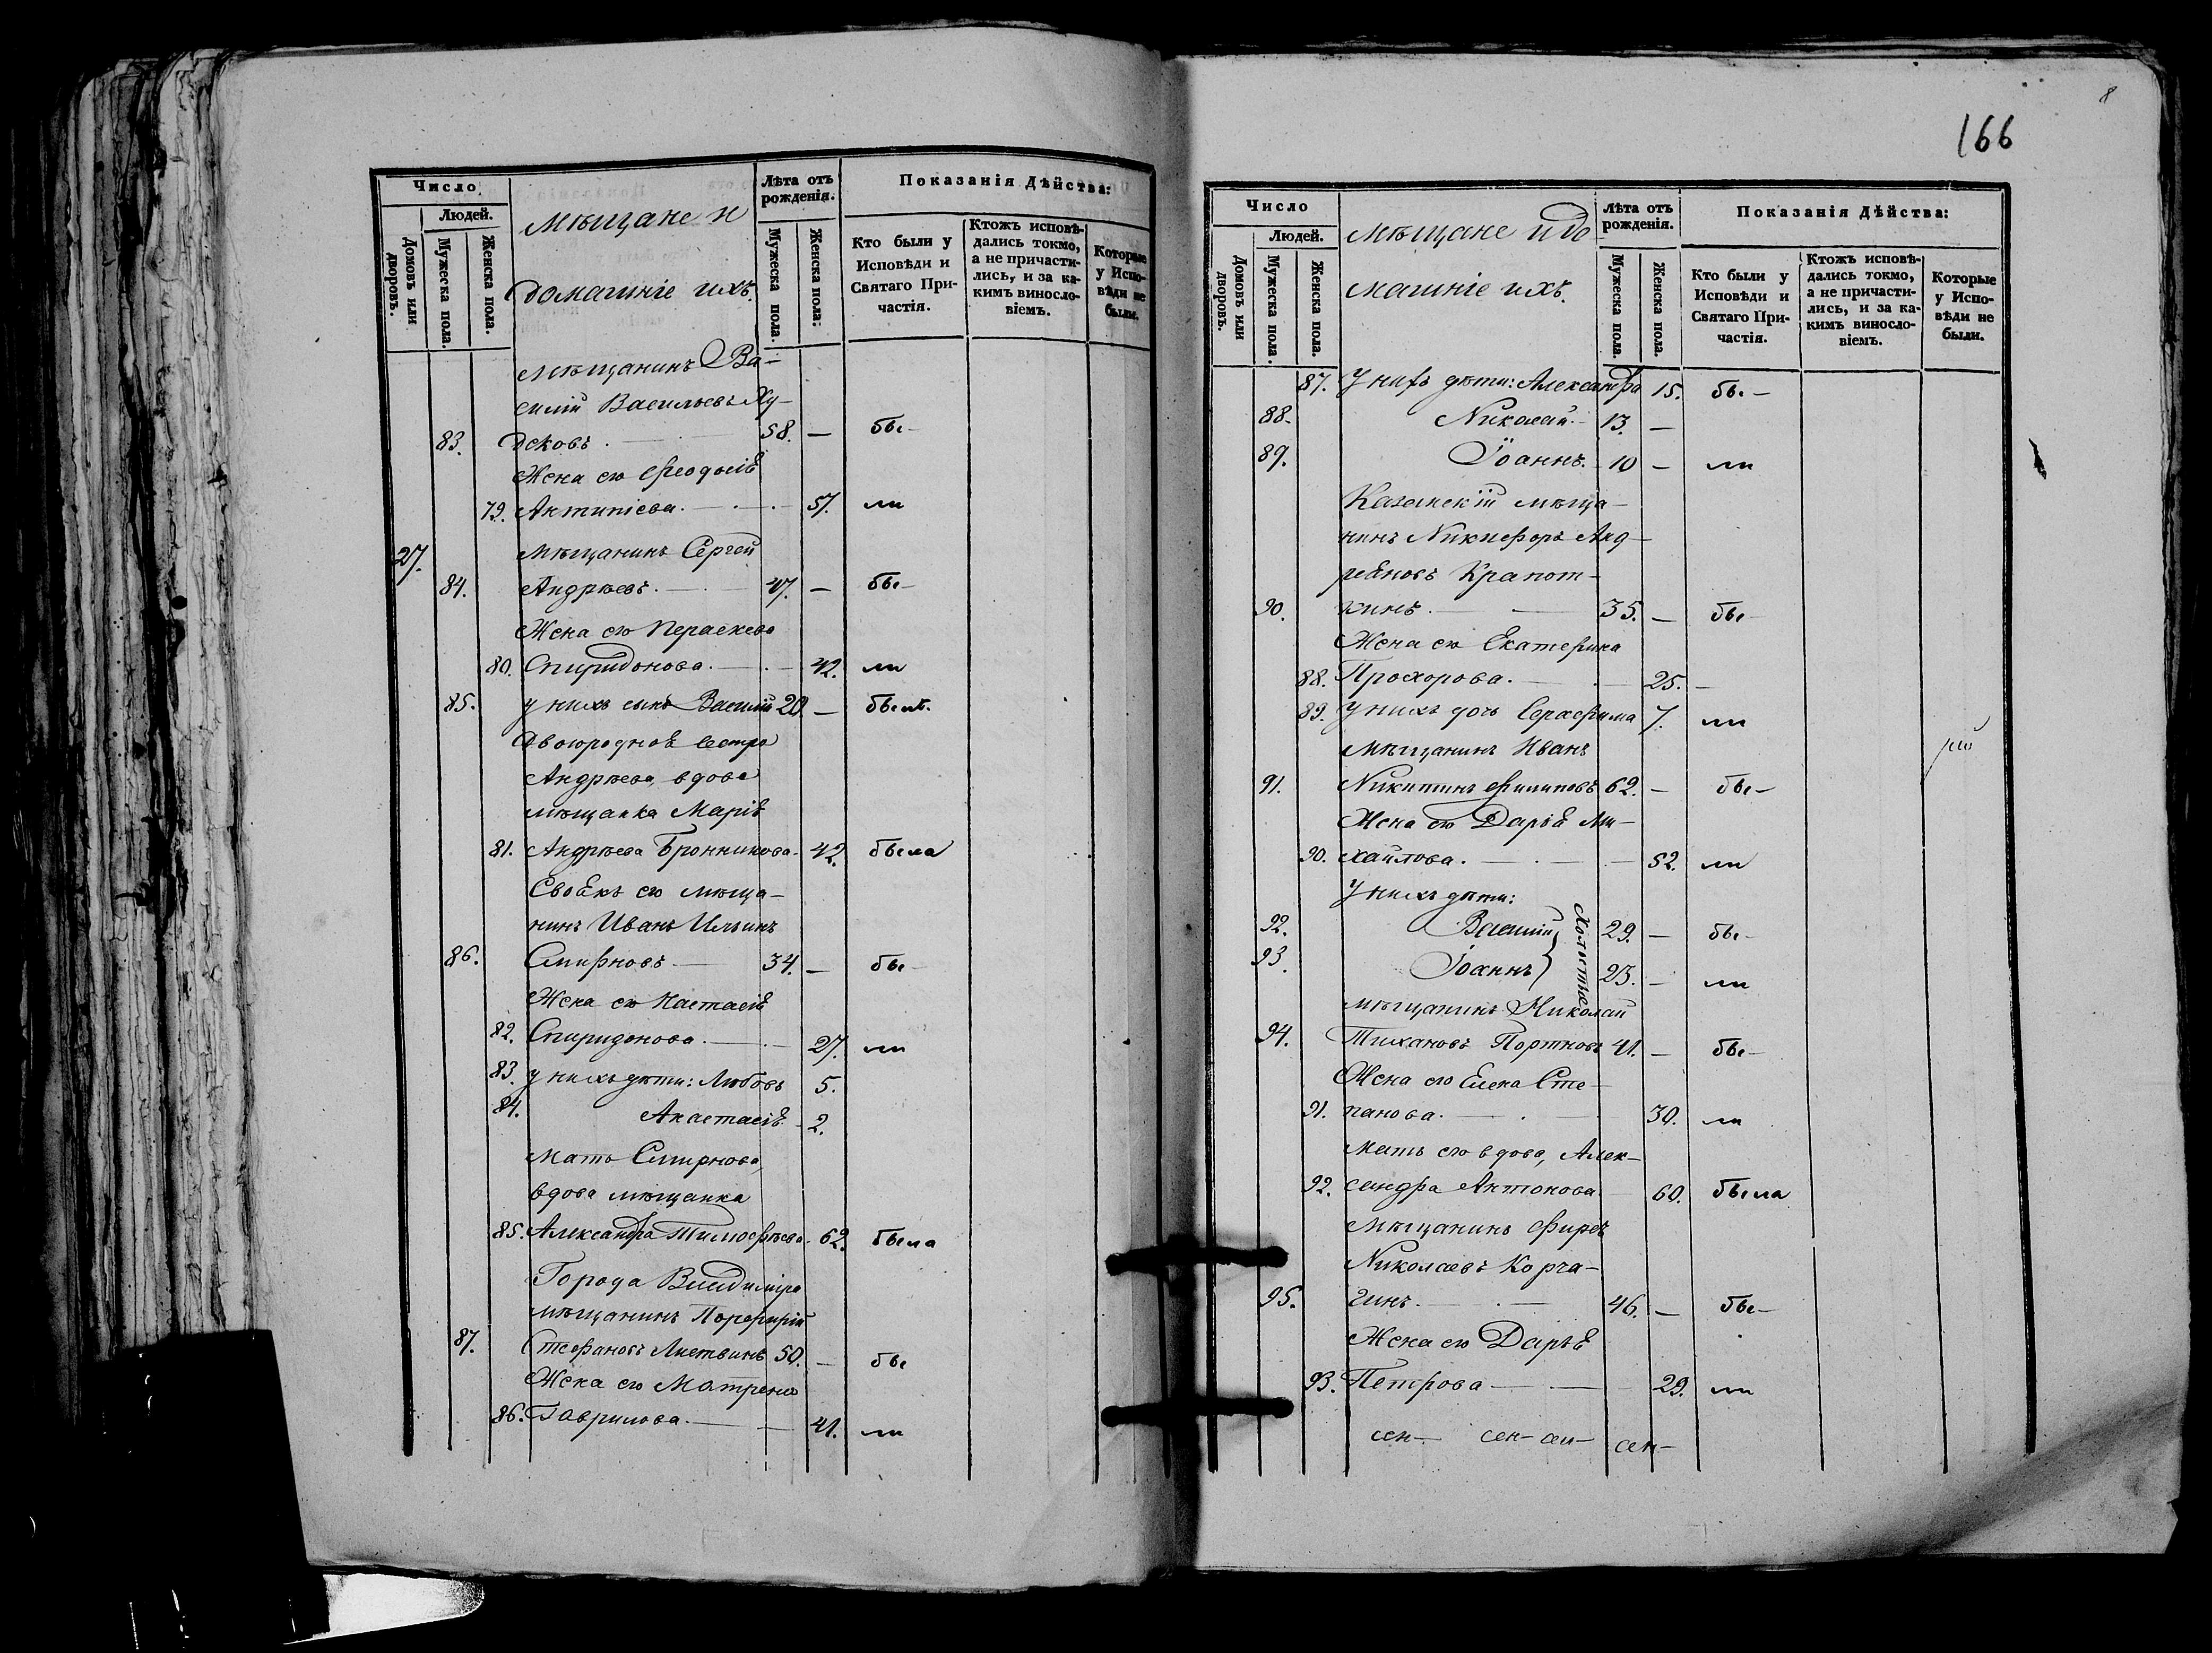 Число
Людей.
Домовъ или дворовъ.
Мужеска пола.
Женска пола.
Мѣщане и
домашніе ихъ.
Лѣта отъ рожденія.
Мужеска пола.
Женска пола.
Показанія Дѣйства:
Кто были у Исповѣди и Святаго Причастія.
Ктожъ исповѣдались токмо, а не причастились, и за какимъ винословіемъ.
Которые у Исповѣди не были.
Мѣщанинъ Ва-
силій Васильевъ Ху-
83. дековъ 58. — бы-
Жена его Феодосія
79. Антипіева 57. ли
27. Мѣщанинъ Сергей
84. Андрѣевъ 47. — бы-
Жена его Параскева
80. Спиридонова 42. ли
85. у нихъ сынъ Василій 20. — былъ.
Двоюродная сестра
Андрѣева, вдова
мѣщанка Марія
81. Андрѣева Бронникова 42. была
Своякъ его мѣща-
нинъ Иванъ Ильинъ
86. Смирновъ 34. — бы-
Жена его Настасія
82. Спиридонова 27. ли
83. у нихъ дѣти: Любовь 5.
84. Анастасія 2.
Мать Смирнова,
вдова мѣщанка
85. Александра Тимофѣева 62. была
Города Владиміра
мѣщанинъ Порфирій
87. Стефановъ Листвинъ 50. — бы
Жена его Матрена
86. Гаврилова 41. ли
8
166
Число
Людей.
Домовъ или дворовъ.
Мужеска пола.
Женска пола.
Мѣщане и до-
машніе ихъ.
Лѣта отъ рожденія.
Мужеска пола.
Женска пола.
Показанія Дѣйства:
Кто были у Исповѣди и Святаго Причастія.
Ктожъ исповѣдались токмо, а не причастились, и за какимъ винословіемъ.
Которые у Исповѣди не были.
87. У нихъ дѣти: Александра 15. бы-
88. Николай 13. —
89. Іоаннъ 10 — ли
Казанскій мѣща-
нинъ Никифоръ Анд-
реяновъ Крапот-
90. кинъ 35. — бы-
Жена его Екатерина
88. Прохорова 25. —
89. У нихъ дочь Серафима 7. ли
Мѣщанинъ Иванъ
91. Никитинъ Филиповъ 62. — бы-
Жена его Дарья Ми-
90. хайлова 52. ли
У нихъ дѣти:
92. Василій 29. — бы-
93. Іоаннъ 23. — ли
Холостые
мѣщанинъ Николай
94. Тихановъ Портновъ 41. — бы-
Жена его Елена Сте-
91. панова 30. ли
Мать его вдова, Алек-
92. сандра Антонова 60. была
Мѣщанинъ Фирсъ
Николаевъ Корча-
95. гинъ 46. — бы-
Жена его Дарья
93. Петрова 29. ли